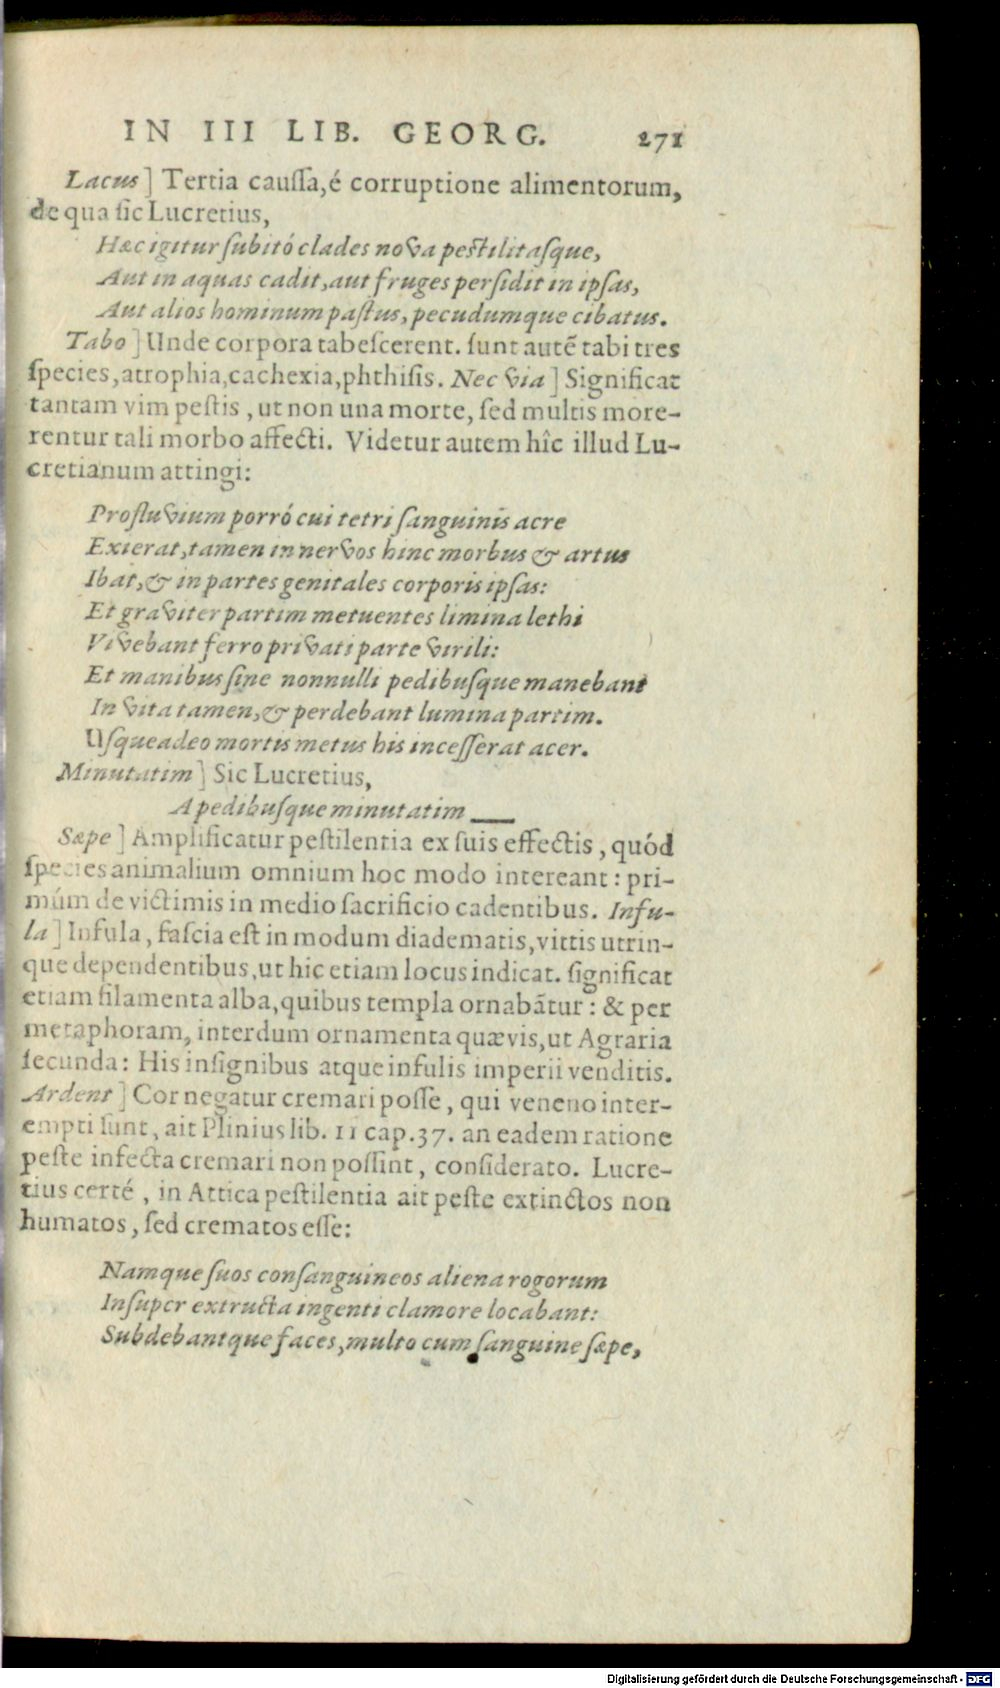 IN III LIB. GEORG. 271
Lacus] Tertia caussa, é corruptione alimentorum,
de qua sic Lucretius,
Hæc igitur subitó clades nova pestilitasque,
Aut in aquas cadit, aut fruges persidit in ipsas,
Aut alios hominum pastus, pecudumque cibatus.
Tabo] Unde corpora tabescerent. sunt autē tabi tres
species, atrophia, cachexia, phthisis. Nec via] Significat
tantam vim pestis, ut non una morte, sed multis more-
rentur tali morbo affecti. Videtur autem hîc illud Lu-
cretianum attingi:
Profluvium porró cui tetri sanguinis acre
Exierat, tamen in nervos hinc morbus & artus
Ibat, & in partes genitales corporis ipsas:
Et graviter partim metuentes limina lethi
Vivebant ferro privati parte virili:
Et manibus sine nonnulli pedibusque manebant
In vita tamen, & perdebant lumina partim.
Usqueadeo mortis metus his incesserat acer.
Minutatim] Sic Lucretius,
A pedibusque minutatim ___
Sæpe] Amplificatur pestilentia ex suis effectis, quód
species animalium omnium hoc modo intereant: pri-
múm de victimis in medio sacrificio cadentibus. Infu-
la] Infula, fascia est in modum diadematis, vittis utrin-
que dependentibus, ut hic etiam locus indicat. significat
etiam filamenta alba, quibus templa ornabātur: & per
metaphoram, interdum ornamenta quævis, ut Agraria
secunda: His insignibus atque infulis imperii venditis.
Ardent] Cor negatur cremari posse, qui veneno inter-
empti sunt, ait Plinius lib. 11 cap. 37. an eadem ratione
peste infecta cremari non possint, considerato. Lucre-
tius certé, in Attica pestilentia ait peste extinctos non
humatos, sed crematos esse:
Namque suos consanguineos aliena rogorum
Insuper extructa ingenti clamore locabant:
Subdebantque faces, multo cum sanguine sæpe,
Digitalisierung gefördert durch die Deutsche Forschungsgemeinschaft - DFG